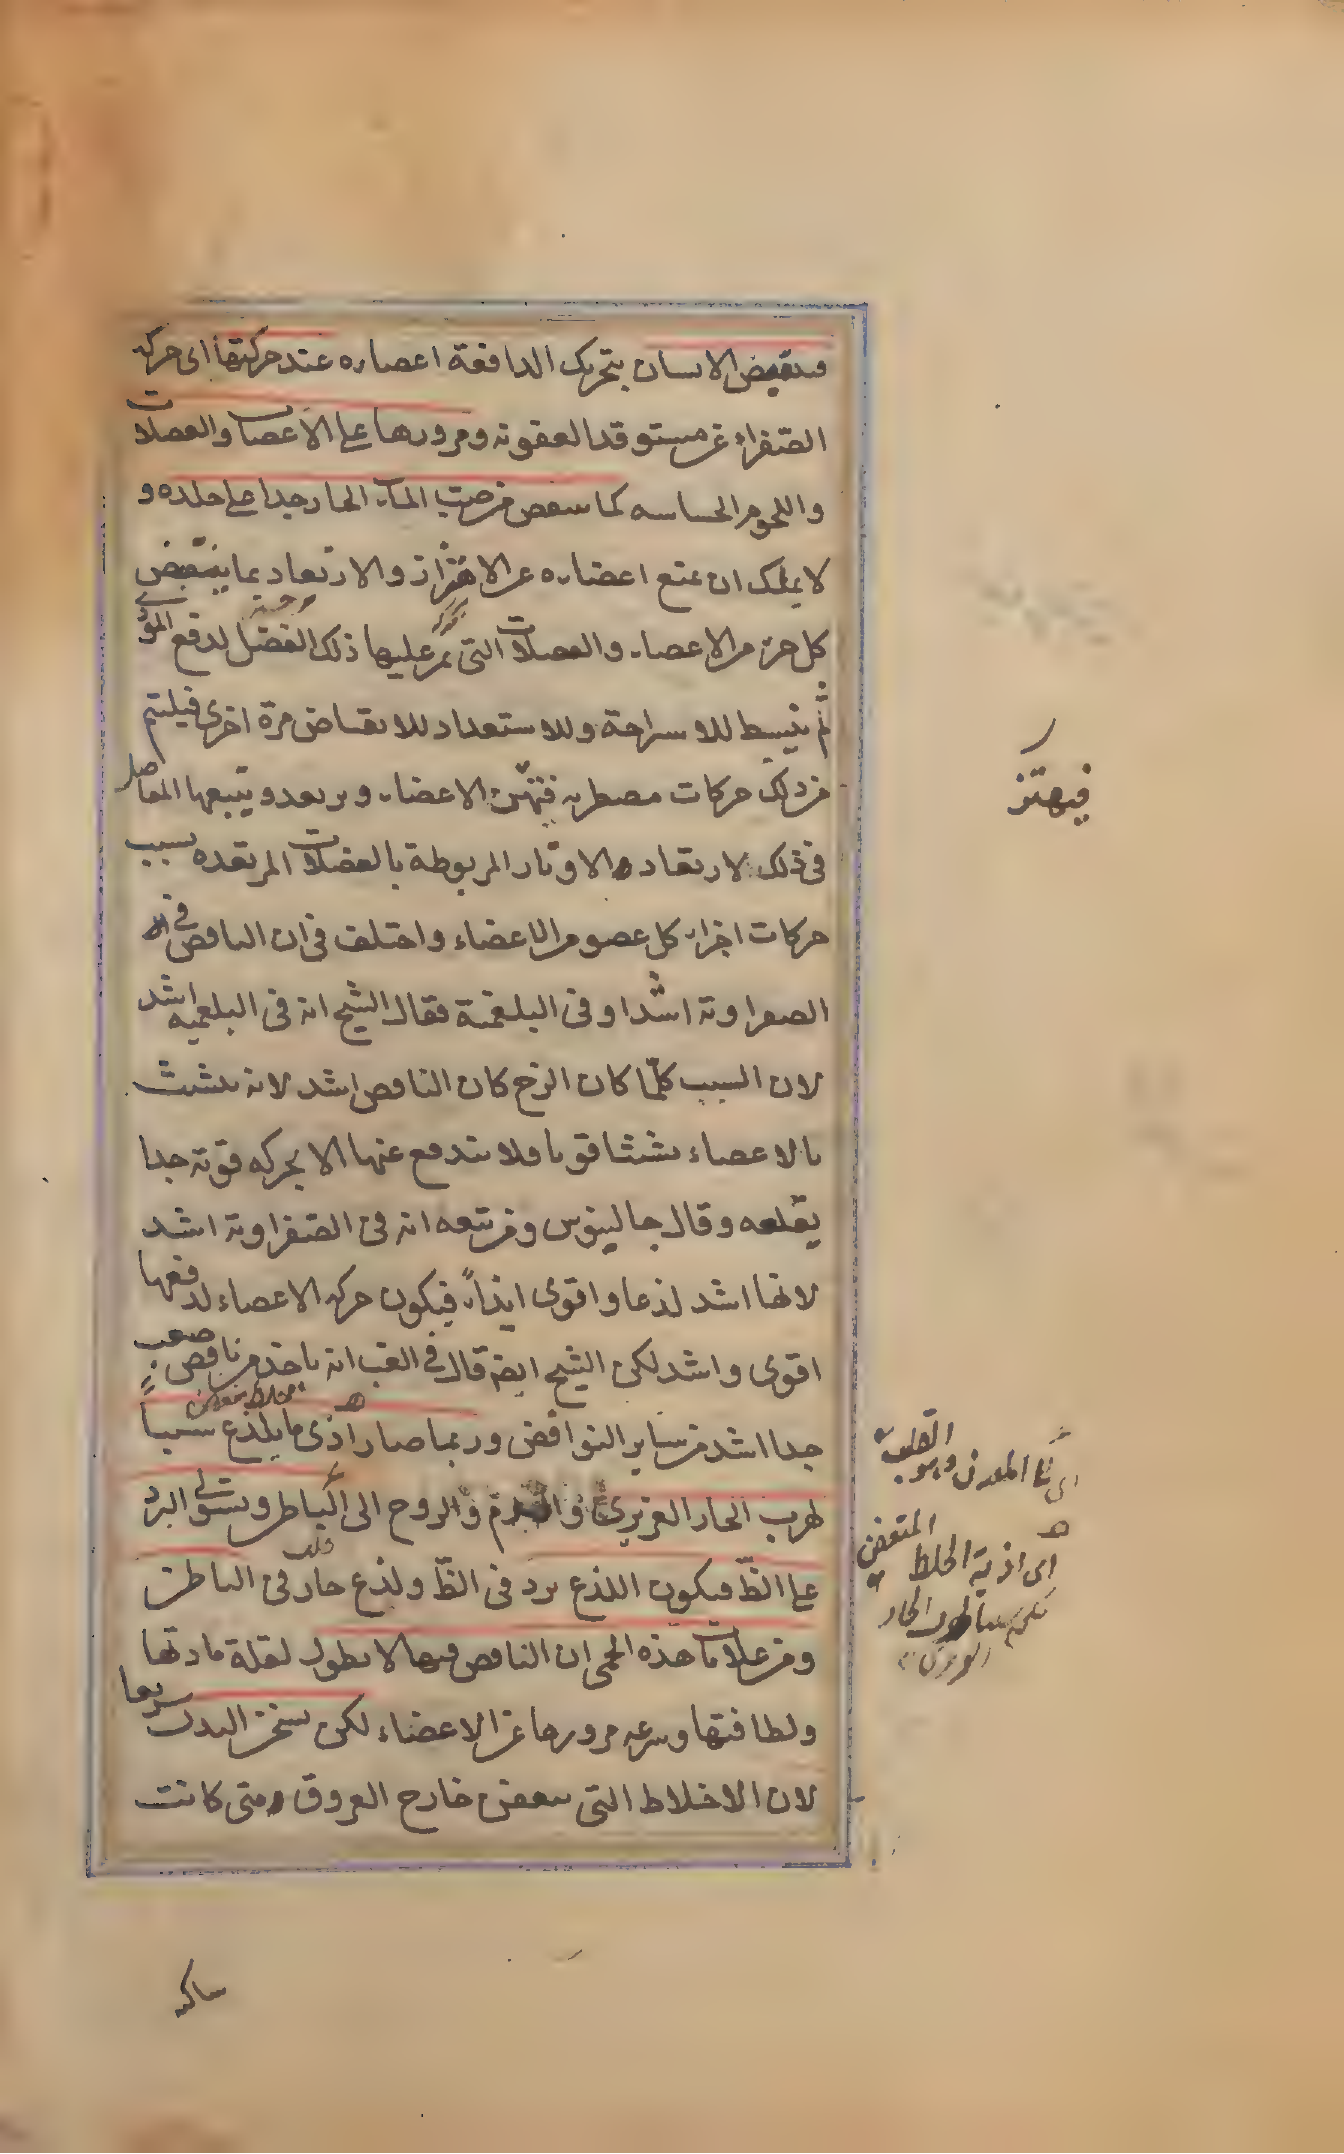 فينقبض الانسان بتحريك الدافعة اعضاءه عند حركتها اى حركه
الصّفراء عن مستوقد العفونه ومرورها على الاعصاب والعضلات
واللحوم الحساسه كما ينقبض من صب الماء الحار جدا على جلده و
لا يملك ان يمنع اعضاءه عن الاهتزاز والارتعاد بما ينقبض
كل جزء من الاعضاء والعضلات التى تمر عليها ذلك الفضل لدفع المؤذى
ثم ينبسط للاستراحة وللاستعداد للانقباض مرة اخرى فيلتئم
من ذلك حركات مضطربه فتهتز الاعضاء ويرتعد ويتبعها المفاصل
فى ذلك لارتعاد الاوتار المربوطة بالعضلات المرتعده بسبب
حركات اجزاء كل عضو من الاعضاء واختلف فى ان النافض فى
الصفراوية اشد او فى البلغمية فقال الشيخ انه فى البلغميه اشد
لان السبب كلّما كان الزج كان النافض اشد لانه يتشبث
بالاعضاء تشبثا قويا فلا يندفع عنها الا بحركه قوية جدا
يقلعه وقال جالينوس ومن تبعه انه فى الصّفراوية اشد
لانها اشد لذعا واقوى ايذاء فيكون حركه الاعضاء لدفعها
اقوى واشد لكن الشيخ ايضا قال فى الغب انه ياخذ من نافض صعب
جدا اشد من ساير النوافض وربما صار اذى ما يلذع سببا
لهرب الحار الغريزى والدم والروح الى الباطن ويستولى البرد
على الظّ فيكون اللذع برد فى الظّ ولذع حار فى الباطن
ومن علامات هذه الحمى ان النافض فيها لا يطول لقلة مادتها
ولطافتها وسرعه مرورها عن الاعضاء لكن يسخن البدن سريعا
لان الاخلاط التى تتعفن خارج العروق متى كانت
فيهتز
القلب
اى اذية الخلط المتعفن
ساكنه